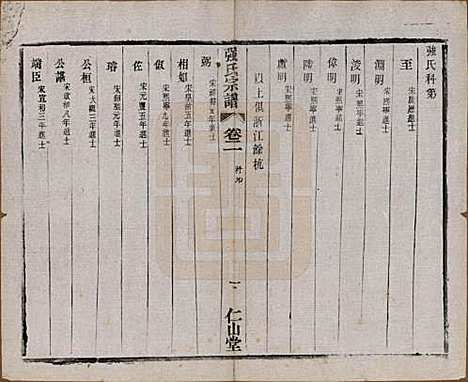 強氏科第
至 宋慶曆進士
淵明 宋熙寧進士
浚明 宋熙寧進士
偉明 宋熙寧進士
陵明 宋熙寧進士
處明 宋熙寧進士
以上俱浙江餘杭
強氏宗譜 卷二 科第 仁山堂
弼 宋 進士
相如 宋 五年進士
俶 宋熙寧九年進士
佐 宋元豐五年進士
瑢 宋 五年進士
公桓 宋大觀三年進士
公謀 宋政和八年進士
端臣 宋宣和三年進士